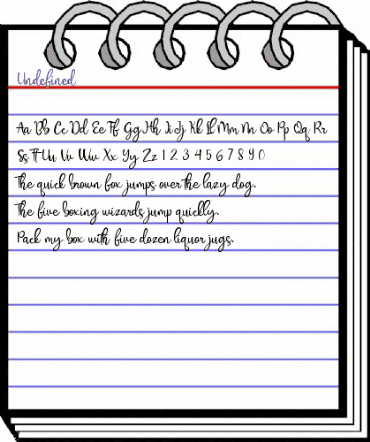 Undefined
Aa Bb Cc Dd Ee Ff Gg Hh Ii Jj Kk Ll Mm Nn Oo Pp Qq Rr
Ss Tt Uu Vv Ww Xx Yy Zz 1 2 3 4 5 6 7 8 9 0
The quick brown fox jumps over the lazy dog.
The five boxing wizards jump quickly.
Pack my box with five dozen liquor jugs.